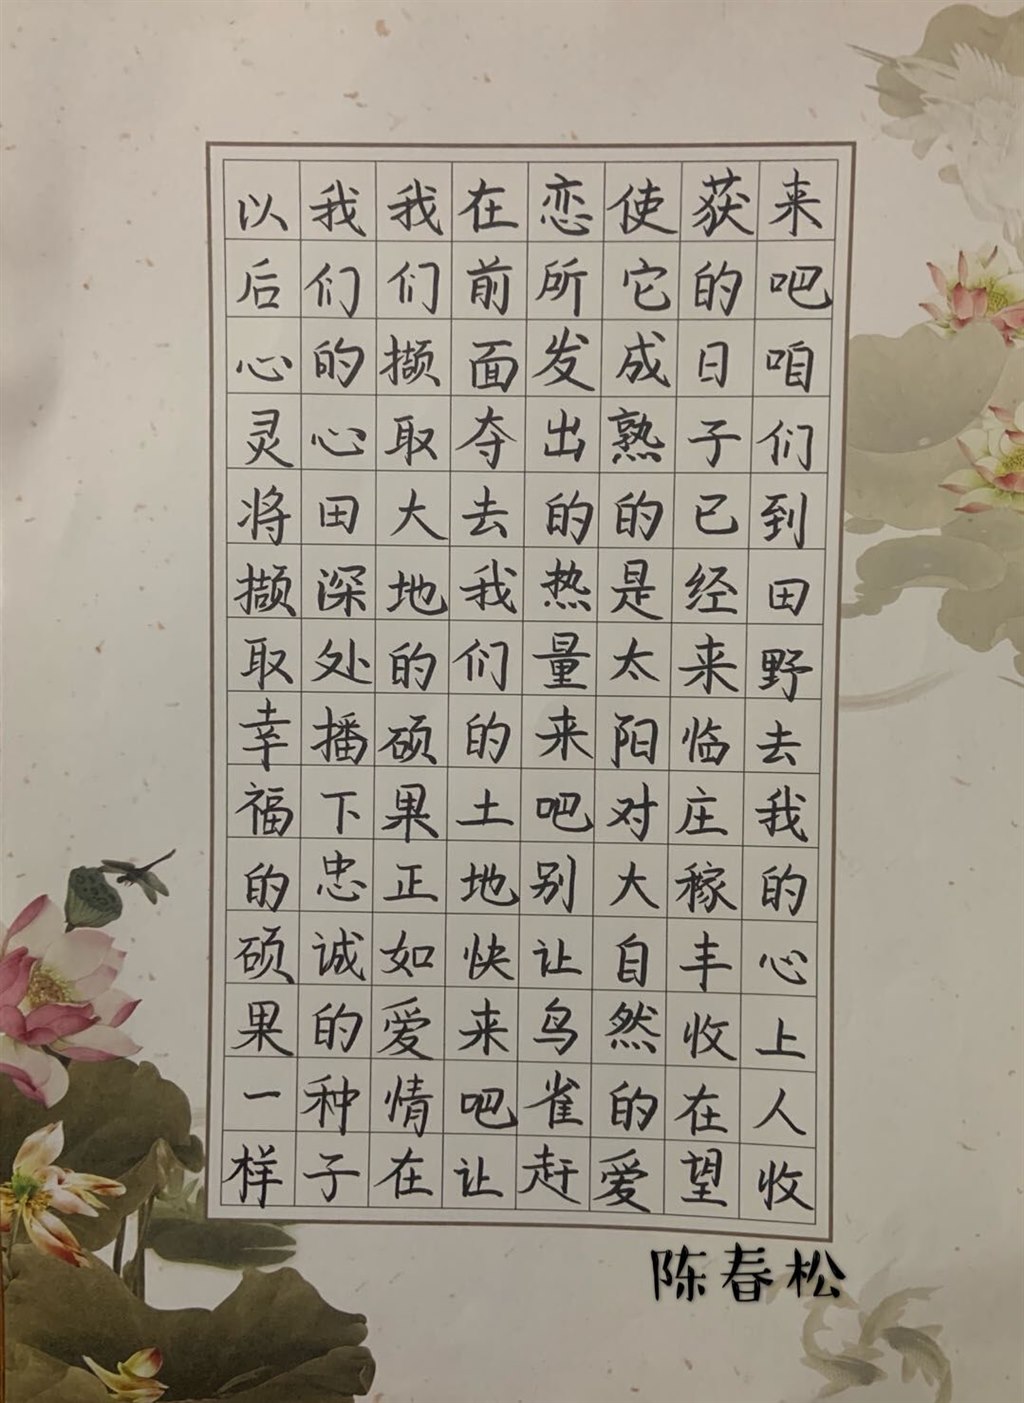 来吧咱们到田野去我的心上人收
获的日子已经来临庄稼丰收在望
使它成熟的是太阳对大自然的爱
恋所发出的热量来吧别让鸟雀赶
在前面夺去我们的土地快来吧让
我们撷取大地的硕果正如爱情在
我们的心田深处播下忠诚的种子
以后心灵将撷取幸福的硕果一样
陈春松